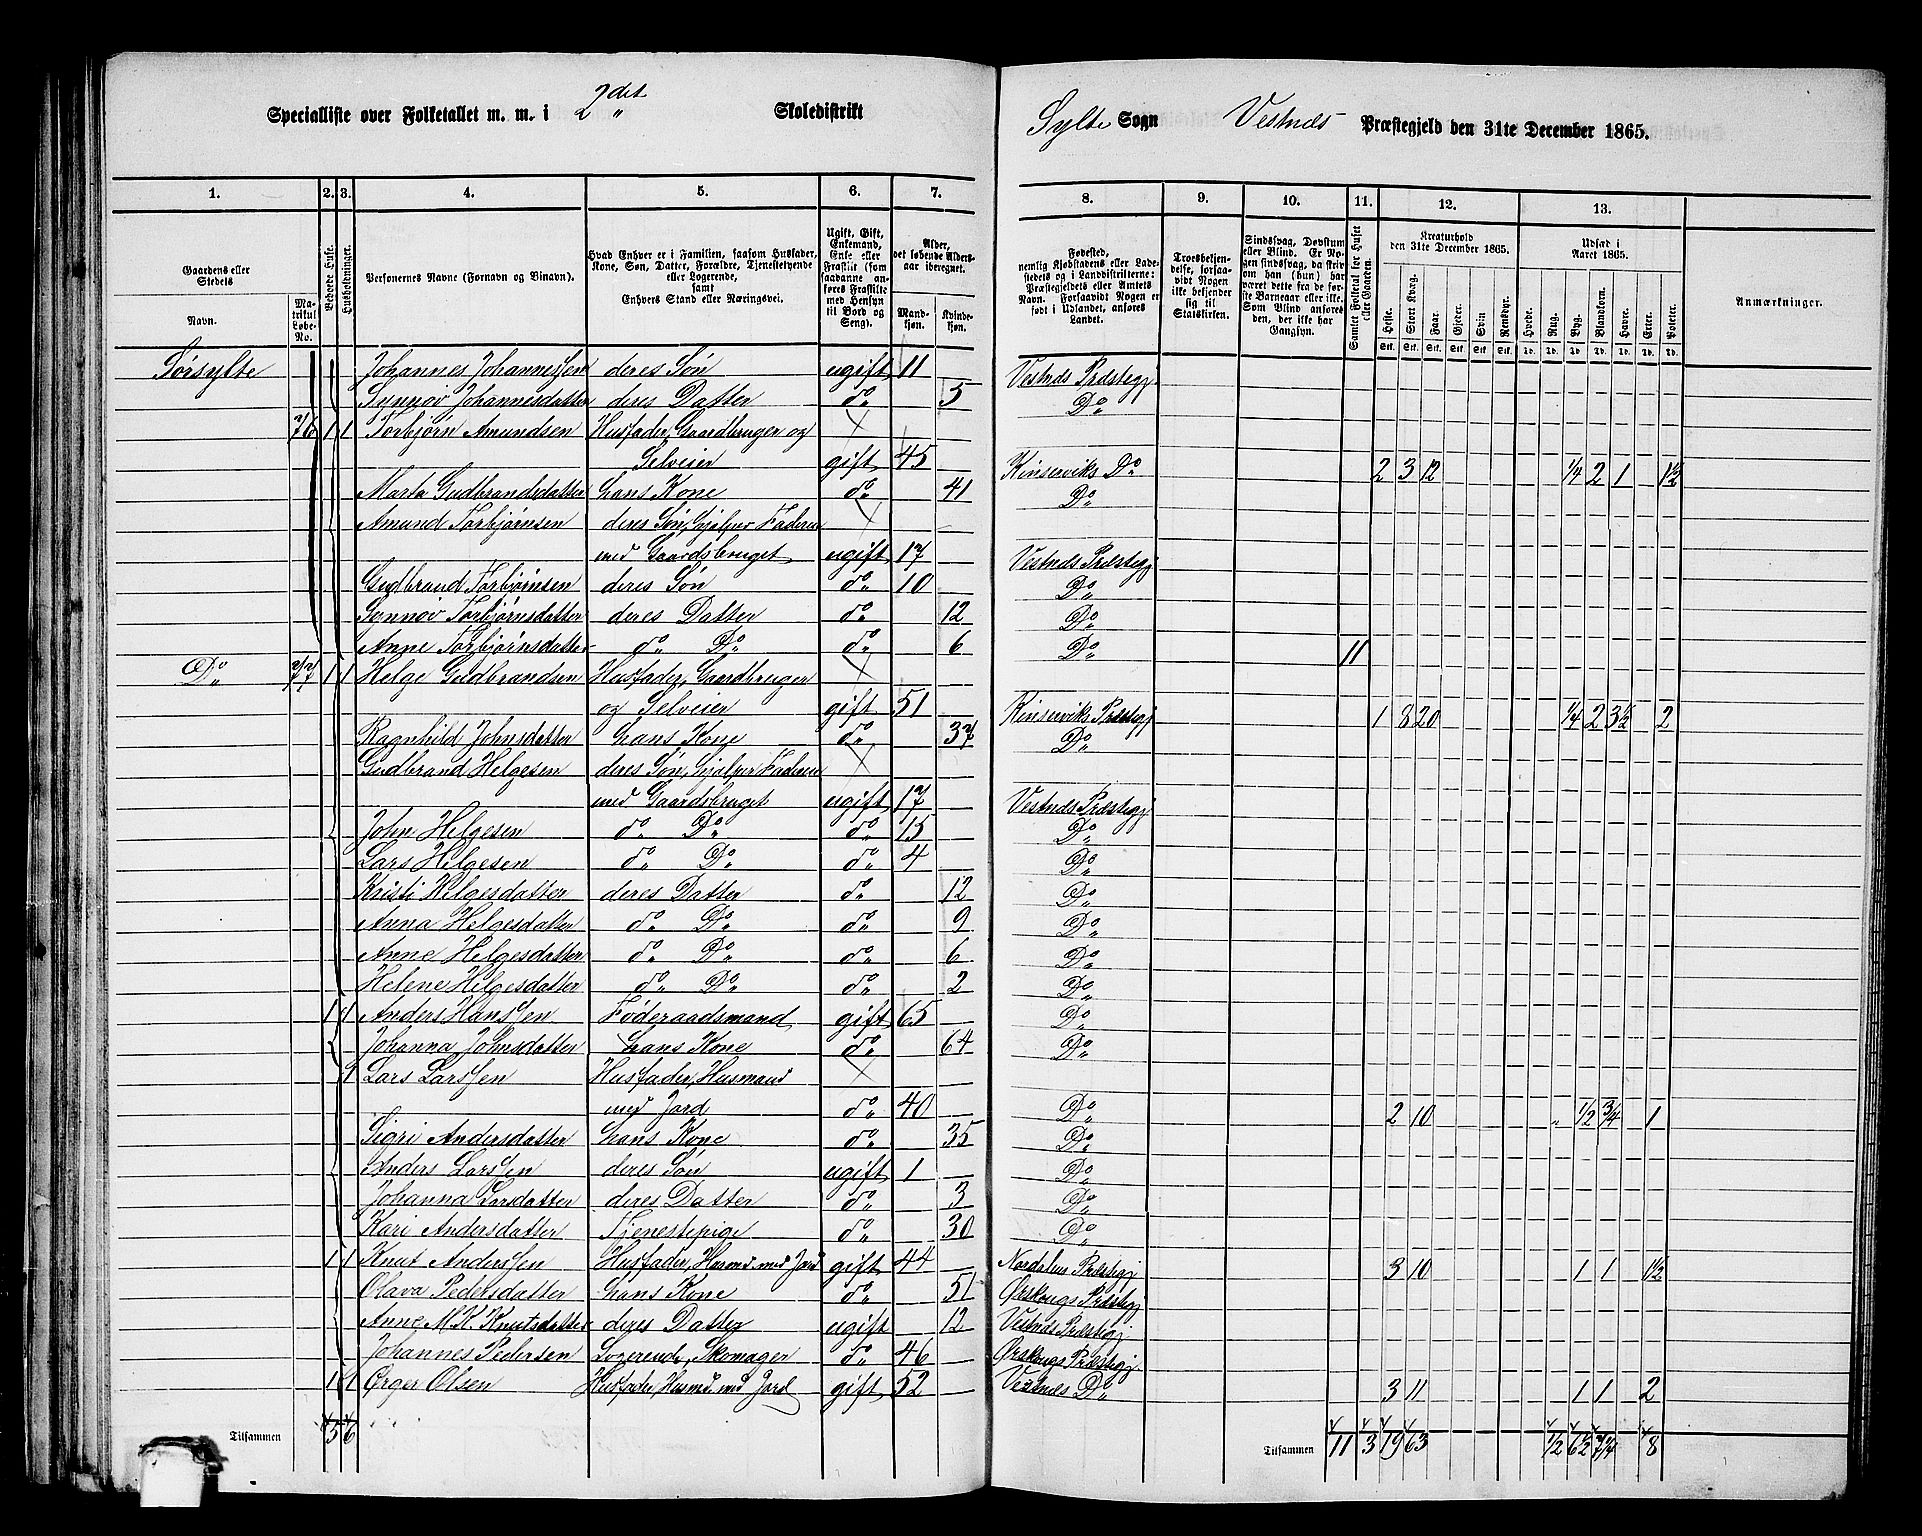 Specialliste over Folketallet m. m. i 2det Skoledistrikt
Sylte Sogn Vestnæs Præstegjeld den 31te December 1865.
1. 2. 3. 4. 5. 6. 7. 8. 9. 10. 11. 12. 13.
Gaardens eller Stedets Navn.
Matrikul Løbe-No.
Beboede Huse.
Husholdninger.
Personernes Navne (Fornavn og Binavn).
Hvad Enhver er i Familien, saasom Husfader, Kone, Søn, Datter, Forældre, Tjenestetyende eller Logerende, samt Enhvers Stand eller Næringsvei.
Ugift, Gift, Enkemand, Enke eller Fraskilt (som saadanne anføres Fraskilte med Hensyn til Bord og Seng).
Alder, det løbende Alders-aar iberegnet.
Mandkjøn. Kvindekjøn.
Fødested, nemlig Kjøbstadens eller Ladestedets og i Landdistrikterne: Præstegjeldets eller Amtets Navn. Forsaavidt Nogen er født i Udlandet, anføres Landet.
Troesbekjendelse, forsaavidt Nogen ikke bekjender sig til Statskirken.
Sindssvag, Døvstum eller Blind. Er Nogen sindssvag, da skrives om han (hun) har været dette fra de første Barneaar eller ikke. Som Blind anføres den, der ikke har Gangsyn.
Samlet Folketal for Huset eller Gaarden.
Kreaturhold den 31te December 1865.
Heste. Stort Kvæg. Faar. Gjeder. Svin. Rensdyr.
Udsæd i Aaret 1865.
Hvede. Rug. Byg. Blandkorn. Havre. Erter. Poteter.
Anmærkninger.
Sørsylte Johannes Johannessen deres Søn ugift 11 Vestnæs Præstegj.
Synnøv Johannesdatter deres Datter do 5 Do
1 1 Torbjørn Amundsen Husfader, Gaardbruger og
Selveier gift 45 Kinserviks Do 2 3 12 1/4 2 1 1½
Marta Gudbrandsdatter hans Kone do 41 Do
Amund Torbjørnsen deres Søn, hjelper Faderen
med Gaardsbruget ugift 17 Vestnæs Præstegj
Gudbrand Torbjørnsen deres Søn do 10 Do
Synnøv Torbjørnsdatter deres Datter do 12 Do
Anne Torbjørnsdatter do Do do 6 Do 11
Do 1 1 Helge Guldbrandsen Husfader, Gaardbruger
og Selveier gift 51 Kinserviks Præstegj 1 8 20 1/4 2 3½ 2
Ragnhild Johnsdatter hans Kone do 37 Do
Gudbrand Helgesen deres Søn, hjelper Faderen
med Gaardsbruget ugift 17 Vestnæs Præstegj
John Helgesen do Do do 15 Do
Lars Helgesen do Do do 4 Do
Kristi Helgesdatter deres Datter do 12 Do
Anna Helgesdatter do Do do 9 Do
Anne Helgesdatter do Do do 6 Do
Helene Helgesdatter do Do do 2 Do
1 1 Anders Hanssen Føderaadsmand gift 65 Do
Johanna Johnsdatter hans Kone do 64 Do
1 Lars Larssen Husfader, Husmand
med Jord do 40 Do 2 10 " 1/2 3/4 1
Sigri Andersdatter hans Kone do 35 Do
Anders Larssen deres Søn ugift 1 Do
Johanna Larsdatter deres Datter do 3 Do
Kari Andersdatter Tjenestepige do 30 Do
1 1 Knut Anderssen Husfader, Husmd med Jord gift 44 Nordalens Præstegj 3 10 1 1 1½
Olava Pedersdatter hans Kone do 51 Ørskougs Præstegj
Anne M. K. Knutsdatter deres Datter ugift 12 Vestnæs Præstegj
Johannes Pedersen Logerende, Skomager do 46 Ørskougs Præstegj
1 1 Ørger Olsen Husfader, Husmd med Jord gift 52 Vestnæs Do 3 11 1 1 2
Tilsammen 5 6
Tilsammen 11 3 19 63 1/2 6½ 7¼ 8